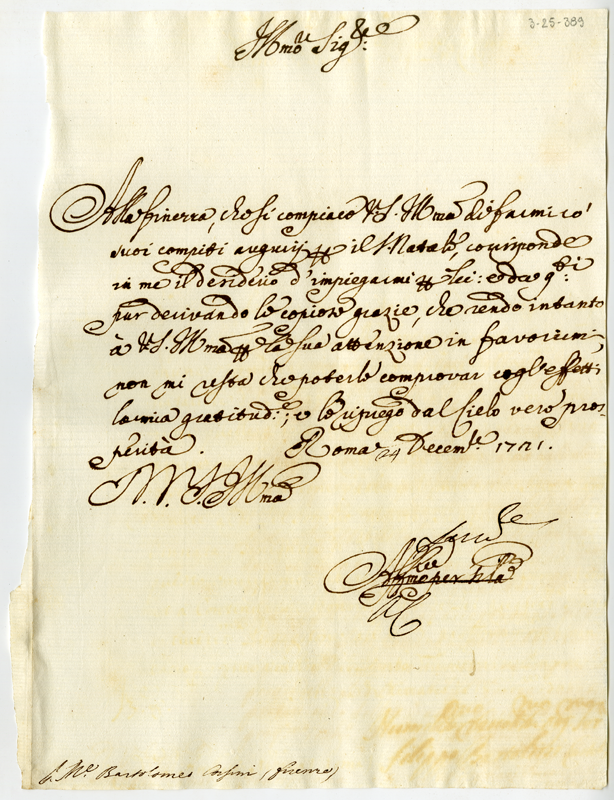 3-25-389
Illmo Sigre
Alla finezza, che si compiace V.S. Illma di farmi co'
suoi compiti augurij il S. Natale, corrisponde
in me il desiderio d'impiegarmi Lei: e da qsti
pur derivando le copiose grazie, che rendo intanto
à V.S. Illma la sua attenzione in favorirmi,
non mi resta che poterle comprovar cogl'effetti
la mia gratitud:e, e le ripiego dal Cielo vere pros-
perità. Roma 24 Decembe 1721.
V.S. Illma
Servre
S. Me. Bartolomeo Corsini (Firenze)